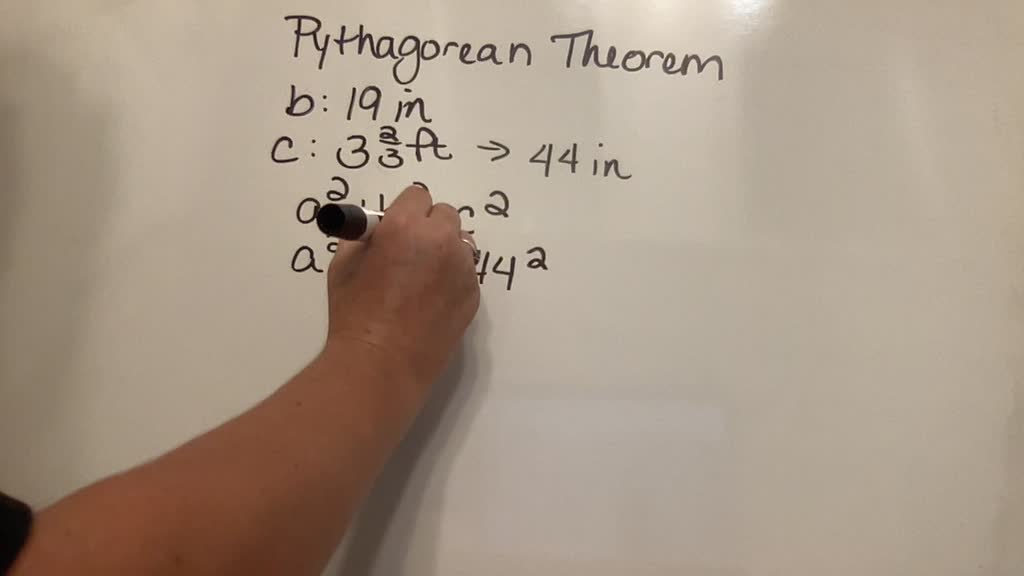 Pythagorean Theorem
b: 19 in
c: 3 2/3 ft → 44 in
a² c²
a 44²